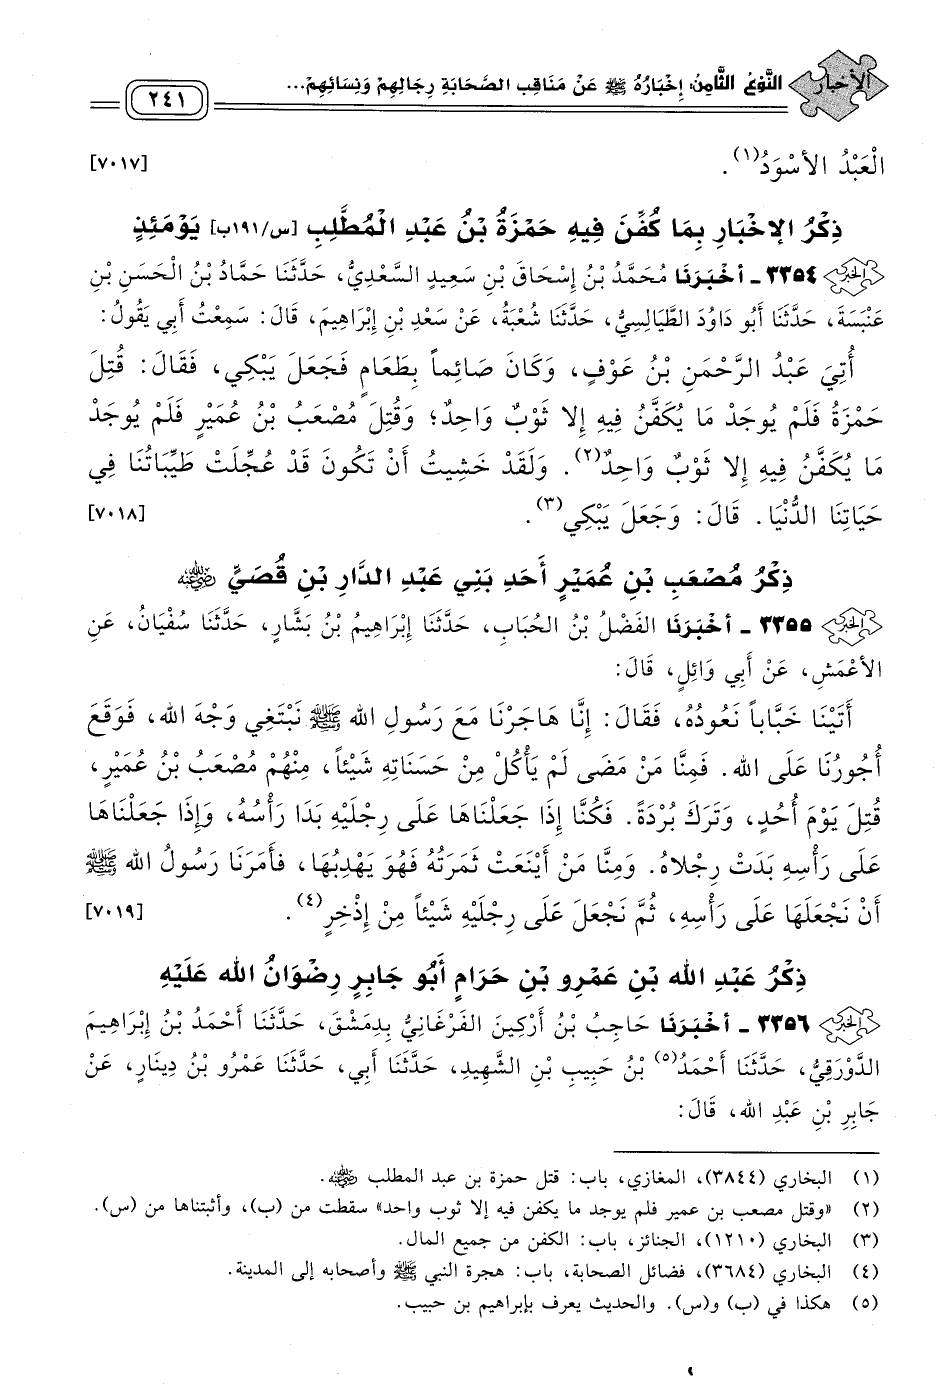 الأخبار النَّوْعُ الثَّامِنُ: إِخْبَارُهُ ﷺ عَنْ مَنَاقِبِ الصَّحَابَةِ رِجَالِهِمْ وَنِسَائِهِمْ... ٢٤١
الْعَبْدُ الأَسْوَدُ(١). [٧٠١٧]
ذِكْرُ الإِخْبَارِ بِمَا كُفِّنَ فِيهِ حَمْزَةُ بْنُ عَبْدِ الْمُطَّلِبِ [س/١٩١ب] يَوْمَئِذٍ
٣٣٥٤ ـ أَخْبَرَنَا مُحَمَّدُ بْنُ إِسْحَاقَ بْنِ سَعِيدٍ السَّعْدِيُّ، حَدَّثَنَا حَمَّادُ بْنُ الْحَسَنِ بْنِ
عَنْبَسَةَ، حَدَّثَنَا أَبُو دَاوُدَ الطَّيَالِسِيُّ، حَدَّثَنَا شُعْبَةُ، عَنْ سَعْدِ بْنِ إِبْرَاهِيمَ، قَالَ: سَمِعْتُ أَبِي يَقُولُ:
أُتِيَ عَبْدُ الرَّحْمَنِ بْنُ عَوْفٍ، وَكَانَ صَائِماً بِطَعَامٍ فَجَعَلَ يَبْكِي، فَقَالَ: قُتِلَ
حَمْزَةُ فَلَمْ يُوجَدْ مَا يُكَفَّنُ فِيهِ إِلا ثَوْبٌ وَاحِدٌ؛ وَقُتِلَ مُصْعَبُ بْنُ عُمَيْرٍ فَلَمْ يُوجَدْ
مَا يُكَفَّنُ فِيهِ إِلا ثَوْبٌ وَاحِدٌ(٢). وَلَقَدْ خَشِيتُ أَنْ تَكُونَ قَدْ عُجِّلَتْ طَيِّبَاتُنَا فِي
حَيَاتِنَا الدُّنْيَا. قَالَ: وَجَعَلَ يَبْكِي(٣). [٧٠١٨]
ذِكْرُ مُصْعَبِ بْنِ عُمَيْرٍ أَحَدِ بَنِي عَبْدِ الدَّارِ بْنِ قُصَيٍّ رضي الله عنه
٣٣٥٥ ـ أَخْبَرَنَا الفَضْلُ بْنُ الحُبَابِ، حَدَّثَنَا إِبْرَاهِيمُ بْنُ بَشَّارٍ، حَدَّثَنَا سُفْيَانُ، عَنِ
الأَعْمَشِ، عَنْ أَبِي وَائِلٍ، قَالَ:
أَتَيْنَا خَبَّاباً نَعُودُهُ، فَقَالَ: إِنَّا هَاجَرْنَا مَعَ رَسُولِ الله ﷺ نَبْتَغِي وَجْهَ الله، فَوَقَعَ
أُجُورُنَا عَلَى الله. فَمِنَّا مَنْ مَضَى لَمْ يَأْكُلْ مِنْ حَسَنَاتِهِ شَيْئاً، مِنْهُمْ مُصْعَبُ بْنُ عُمَيْرٍ،
قُتِلَ يَوْمَ أُحُدٍ، وَتَرَكَ بُرْدَةً. فَكُنَّا إِذَا جَعَلْنَاهَا عَلَى رِجْلَيْهِ بَدَا رَأْسُهُ، وَإِذَا جَعَلْنَاهَا
عَلَى رَأْسِهِ بَدَتْ رِجْلاهُ. وَمِنَّا مَنْ أَيْنَعَتْ ثَمَرَتُهُ فَهُوَ يَهْدِبُهَا، فَأَمَرَنَا رَسُولُ الله ﷺ
أَنْ نَجْعَلَهَا عَلَى رَأْسِهِ، ثُمَّ نَجْعَلَ عَلَى رِجْلَيْهِ شَيْئاً مِنْ إِذْخِرٍ(٤). [٧٠١٩]
ذِكْرُ عَبْدِ الله بْنِ عَمْرِو بْنِ حَرَامٍ أَبُو جَابِرٍ رِضْوَانُ الله عَلَيْهِ
٣٣٥٦ ـ أَخْبَرَنَا حَاجِبُ بْنُ أَرْكِينَ الفَرْغَانِيُّ بِدِمَشْقَ، حَدَّثَنَا أَحْمَدُ بْنُ إِبْرَاهِيمَ
الدَّوْرَقِيُّ، حَدَّثَنَا أَحْمَدُ(٥) بْنُ حَبِيبِ بْنِ الشَّهِيدِ، حَدَّثَنَا أَبِي، حَدَّثَنَا عَمْرُو بْنُ دِينَارٍ، عَنْ
جَابِرِ بْنِ عَبْدِ الله، قَالَ:
(١) البخاري (٣٨٤٤)، المغازي، باب: قتل حمزة بن عبد المطلب رضي الله عنه.
(٢) «وقتل مصعب بن عمير فلم يوجد ما يكفن فيه إلا ثوب واحد» سقطت من (ب)، وأثبتناها من (س).
(٣) البخاري (١٢١٠)، الجنائز، باب: الكفن من جميع المال.
(٤) البخاري (٣٦٨٤)، فضائل الصحابة، باب: هجرة النبي ﷺ وأصحابه إلى المدينة.
(٥) هكذا في (ب) و(س). والحديث يعرف بإبراهيم بن حبيب.